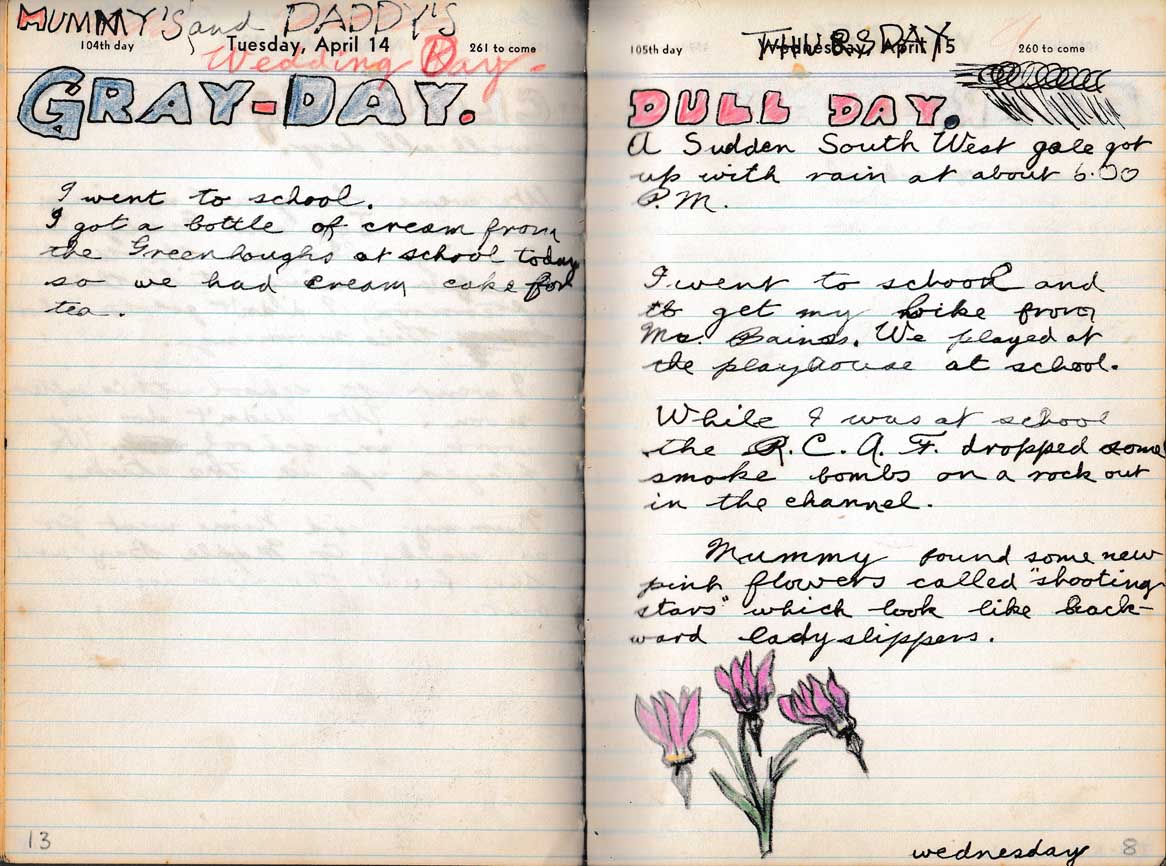 MUMMY'S and DADDY'S
104th day Tuesday, April 14 261 to come
Wedding Day.
GRAY-DAY.
I went to school.
I got a bottle of cream from
the Greenhoughs at school today
so we had cream cake for
tea.
13
105th day Wednesday, April 15 260 to come
THURSDAY
DULL DAY.
A Sudden South West gale got
up with rain at about 6.00
P.M.
I went to school and
to get my bike from
Mrs. Bains. We played at
the playhouse at school.
While I was at school
the R.C.A.F. dropped some
smoke bombs on a rock out
in the channel.
Mummy found some new
pink flowers called "shooting
stars" which look like back-
ward ladyslippers.
wednesday 8